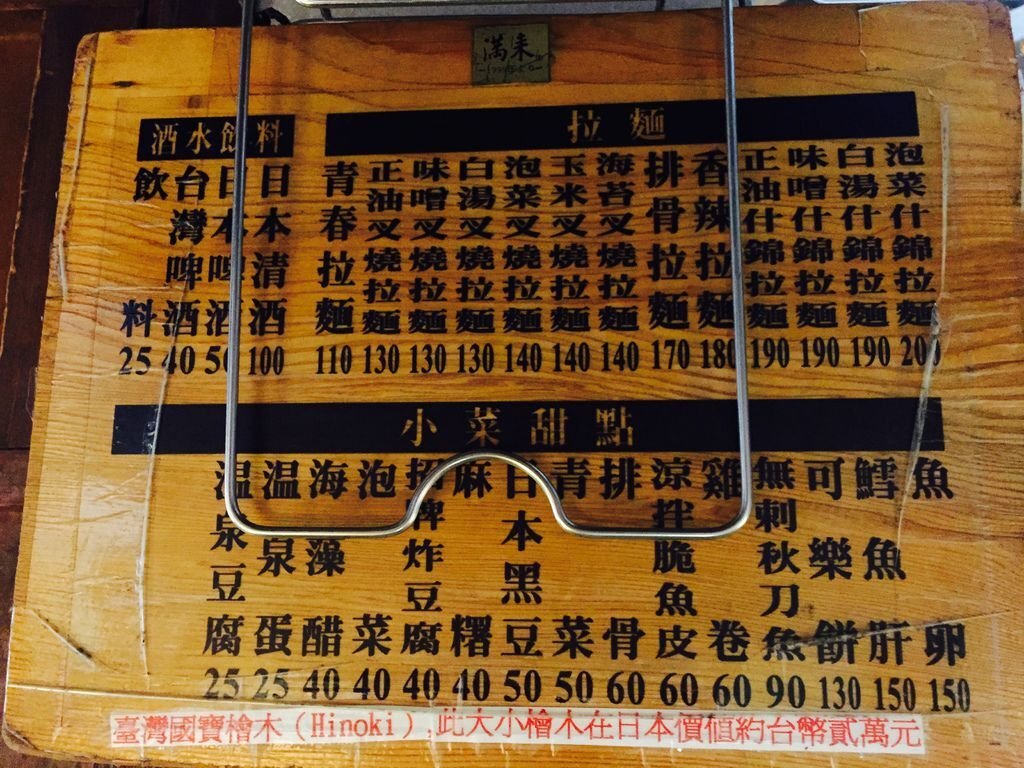 滿来
酒水飲料
飲料 25
台灣啤酒 40
日本啤酒 50
日本清酒 100
拉麵
青春拉麵 110
正油叉燒拉麵 130
味噌叉燒拉麵 130
白湯叉燒拉麵 130
泡菜叉燒拉麵 140
玉米叉燒拉麵 140
海苔叉燒拉麵 140
排骨拉麵 170
香辣拉麵 180
正油什錦拉麵 190
味噌什錦拉麵 190
白湯什錦拉麵 190
泡菜什錦拉麵 200
小菜甜點
温泉豆腐 25
温泉蛋 25
海藻醋 40
泡菜 40
招牌炸豆腐 40
麻糬 40
日本黑豆 50
青菜 50
排骨 60
涼拌脆魚皮 60
雞卷 60
無刺秋刀魚 90
可樂餅 130
鱈魚肝 150
魚卵 150
臺灣國寶檜木（Hinoki）,此大小檜木在日本價值約台幣貳萬元